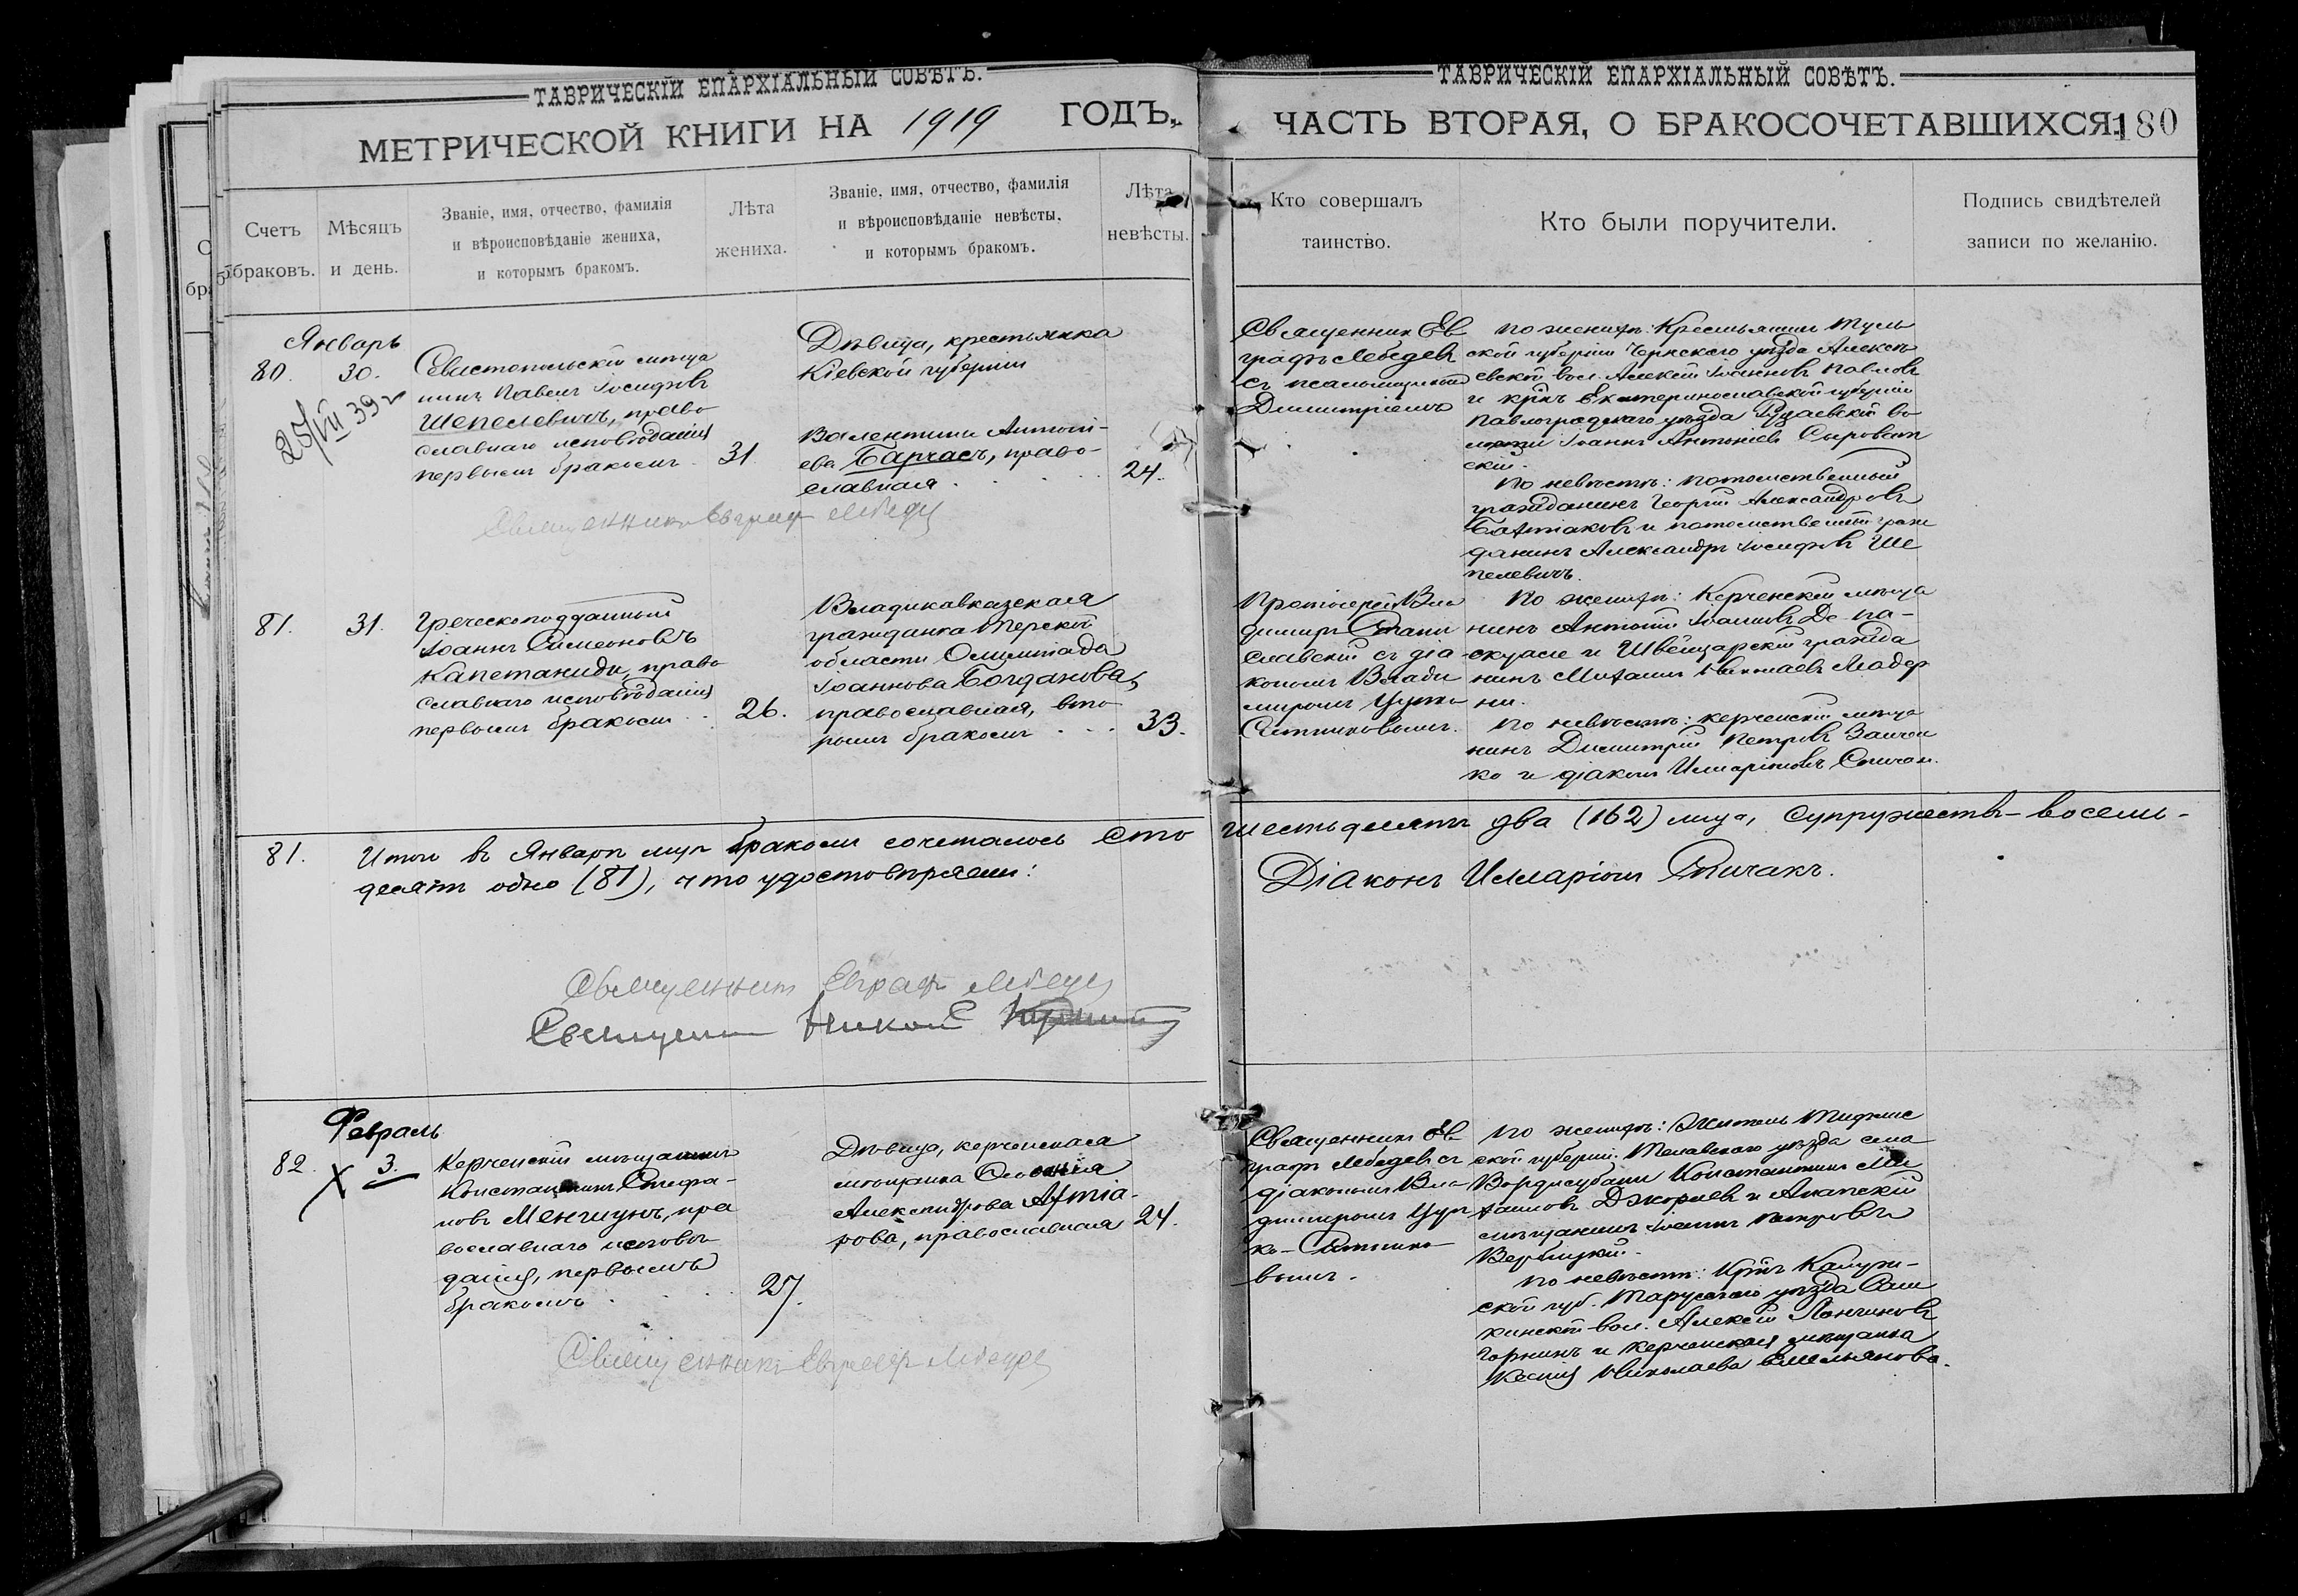 ТАВРИЧЕСКІЙ ЕПАРХІАЛЬНЫЙ СОВѢТЪ.
МЕТРИЧЕСКОЙ КНИГИ НА 1919 ГОДЪ,
Счетъ браковъ.
Мѣсяцъ и день.
Званіе, имя, отчество, фамилія
и вѣроисповѣданіе жениха,
и которымъ бракомъ.
Лѣта
жениха.
Званіе, имя, отчество, фамилія
и вѣроисповѣданіе невѣсты,
и которымъ бракомъ.
Лѣта
невѣсты.
Январь
80. 30.
25/VII 39 г
Севастопольскій мѣща
нинъ Павелъ Іосифовъ
Шепелевичъ, право
славнаго исповѣданія
первымъ бракомъ 31
Дѣвица, крестьянка
Кіевской губерніи
Валентина Антоні-
ева Барчасъ, право-
славная 24.
Священникъ Евграф Лебедев
81. 31.
Греческоподданный
Іоаннъ Симеоновъ
Капетаниди, право
славнаго исповѣданія
первымъ бракомъ 26.
Владикавказская
гражданка Терской
области Олимпіада
Іоаннова Богданова,
православная, вто
рымъ бракомъ 33.
81. Итого въ Январѣ мцѣ бракомъ сочеталось сто
десятъ одно (81), что удостовѣряемъ:
Священник Евграф Лебедев
Священник Никол
Февраль
82. X 3.
Керченскій мѣщанинъ
Константинъ Стефа-
новъ Менгиунъ, пра
вославнаго исповѣ
данія, первымъ
бракомъ 27.
Дѣвица, керченская
мѣщанка
Александрова Афтіа-
рова, православная 24.
Священникъ Евграф Лебедев
ТАВРИЧЕСКІЙ ЕПАРХІАЛЬНЫЙ СОВѢТЪ.
ЧАСТЬ ВТОРАЯ, О БРАКОСОЧЕТАВШИХСЯ: 180
Кто совершалъ
таинство.
Кто были поручители.
Подпись свидѣтелей
записи по желанію.
Священник Ев
графъ Лебедев
съ псаломщикомъ
Димитріемъ
По женихѣ: Крестьянин Туль
ской губерніи уѣзда Алексѣ
евской вол. Алексій Іоанновъ Павлов
и крнъ Екатеринославской губерніи
Павлоградскаго уѣзда во
лости Іоаннъ Антоніевъ Сыроват
скій.
По невѣстѣ: потомственный
гражданинъ Георгій Александровъ
и потомственный граж
данинъ Александръ Іосифовъ Ше
пелевичъ.
Протоіерей Вла
димиръ Стани
славскій съ діа
кономъ Влади
миромъ Цупко
Ситниковымъ.
По женихѣ: Керченскій мѣща
нинъ Антоній Іоанновъ Де-Па-
скуале и Швейцарскій гражда
нинъ Михаилъ Николаевъ Мадер
ни.
По невѣстѣ: керченскій мѣща
нинъ Димитрій Петровъ Заичен
ко и діаконъ Илларіоновъ Спичак.
шестьдесятъ два (162) лица, супружествъ - восемь-
Діаконъ Илларіонъ Спичакъ.
Священникъ Ев
графъ Лебедевъ съ
діакономъ Вла
димиромъ Цуп
ко-Ситнико
вымъ.
По женихѣ: Житель Тифлис
ской губерніи Телавскаго уѣзда села
Вардисубани Константинъ Ми
хаиловъ Джораевъ и Анапскій
мѣщанинъ Іоаннъ Петровъ
Вербицкій.
По невѣстѣ: Крнъ Калуж-
ской губ. Тарусскаго уѣзда
вол. Алексій Логгиновъ
Горнинъ и керченская мѣщанка
Ксенія Николаева Емельянова.